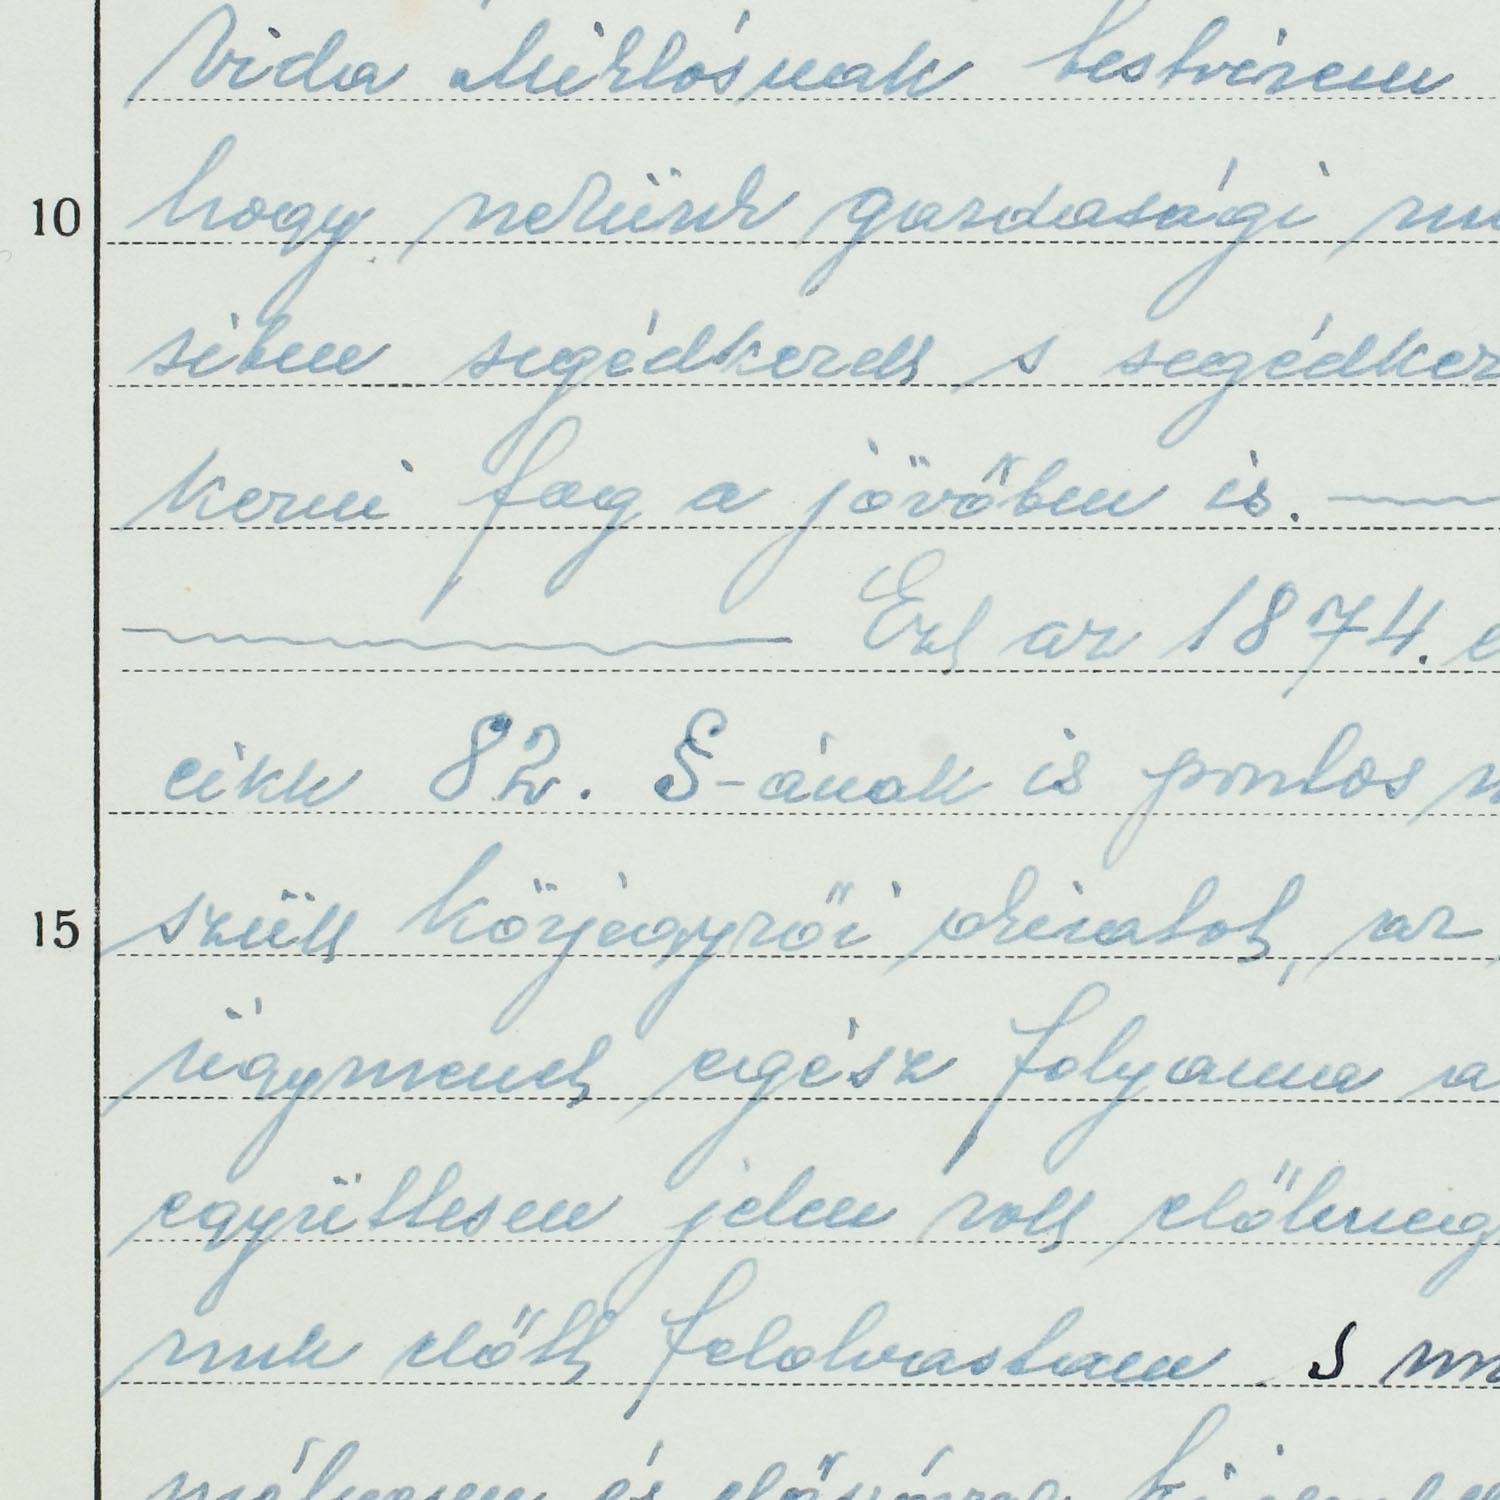 Vida Miklósnak testvérem
10 hogy nekünk gazdasági mu
sében segédkezett s segédkez
kezni fog a jövőben is.
Ezt az 1874. é
cikk 82. §-ának is pontos m
15 szülő közjegyzői okiratot, az
ügymenet egész folyama a
együttesen jelen volt előttünk
nuk előtt felolvastam s m
és